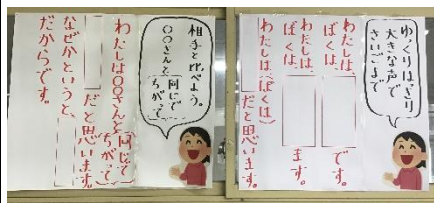 ゆっくりはっきり
大きな声で
さいごまで
わたしは、
ぼくは、
です。
わたしは、
ぼくは、
ます。
わたしは(ぼくは)
だと思います。
相手と比べよう。
〇〇さんと
同じで
ちがって
わたしは〇〇さんと
同じで
ちがって
だと思います。
なぜかというと、
だからです。